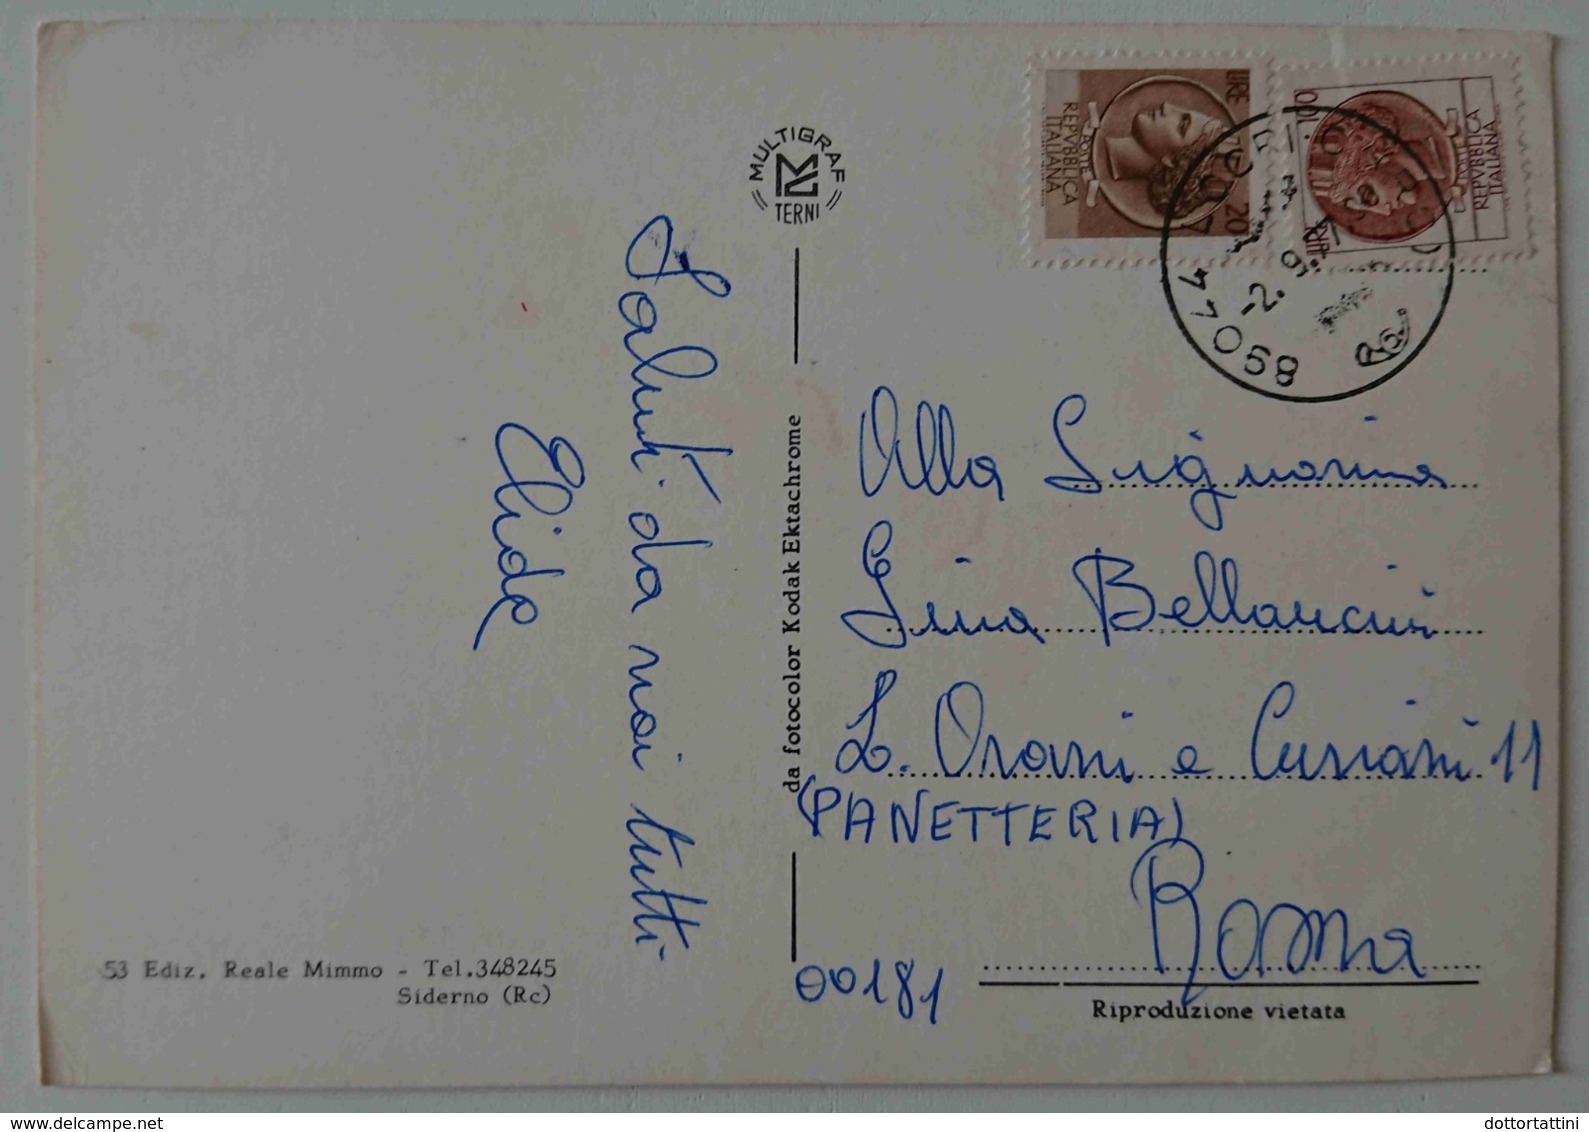 MULTIGRAF
TERNI
LIRE 20
POSTE
REPVBBLICA
ITALIANA
100
LIRE
REPVBBLICA
ITALIANA
89047
-2.9.
Saluti da noi tutti
Elide
da fotocolor Kodak Ektachrome
Alla Signorina
Gina Bellancini
L. Orazi e Curiazi 11
(PANETTERIA)
Roma
00181
53 Ediz. Reale Mimmo - Tel.348245
Siderno (Rc)
Riproduzione vietata
www.delcampe.net
dottortattini